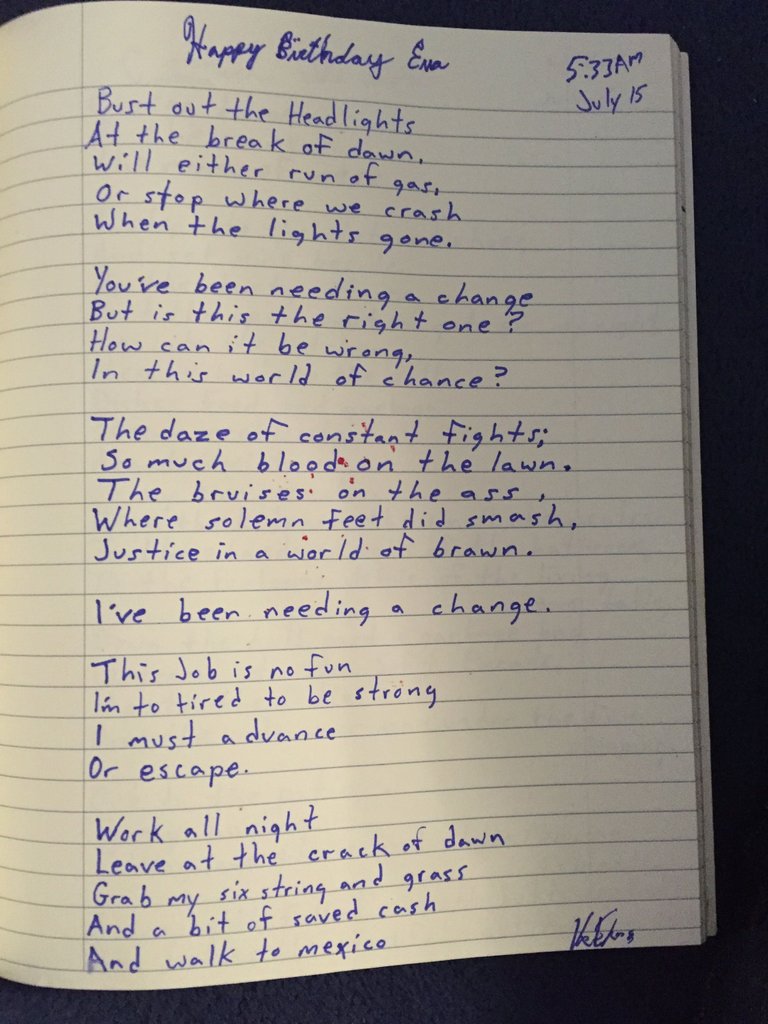 Happy Birthday Eva
5:33AM
July 15
Bust out the Headlights
At the break of dawn,
Will either run of gas,
Or stop where we crash
When the lights gone.
You've been needing a change
But is this the right one?
How can it be wrong,
In this world of chance?
The daze of constant fights;
So much blood on the lawn.
The bruises on the ass,
Where solemn feet did smash,
Justice in a world of brawn.
I've been needing a change.
This Job is no fun
I'm to tired to be strong
I must advance
Or escape.
Work all night
Leave at the crack of dawn
Grab my six string and grass
And a bit of saved cash
And walk to mexico